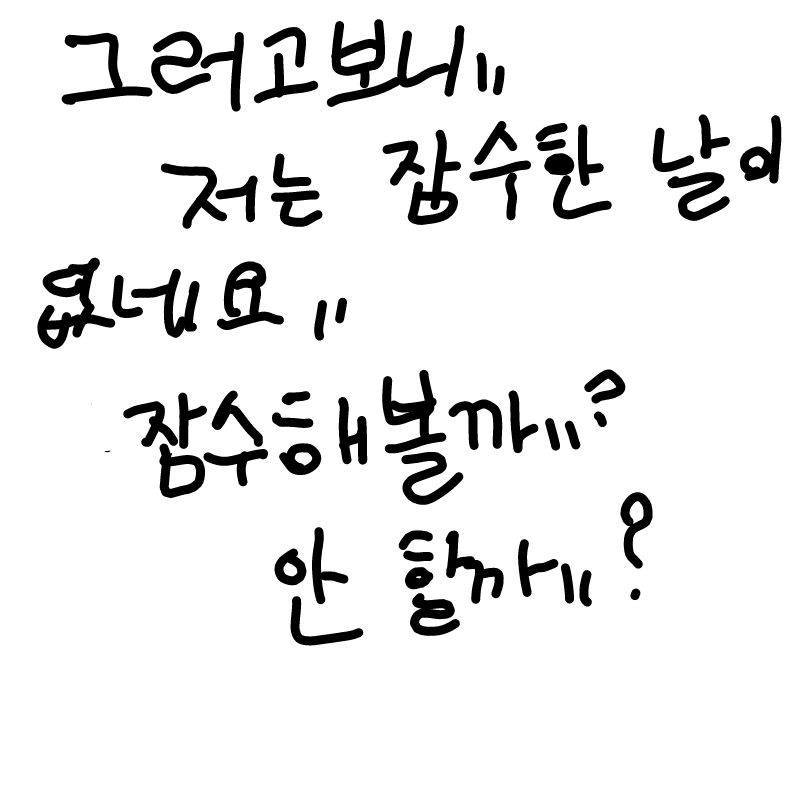 그러고보니"
저는 잠수한 날이
없네요"
잠수해볼까"?
안 할까"?